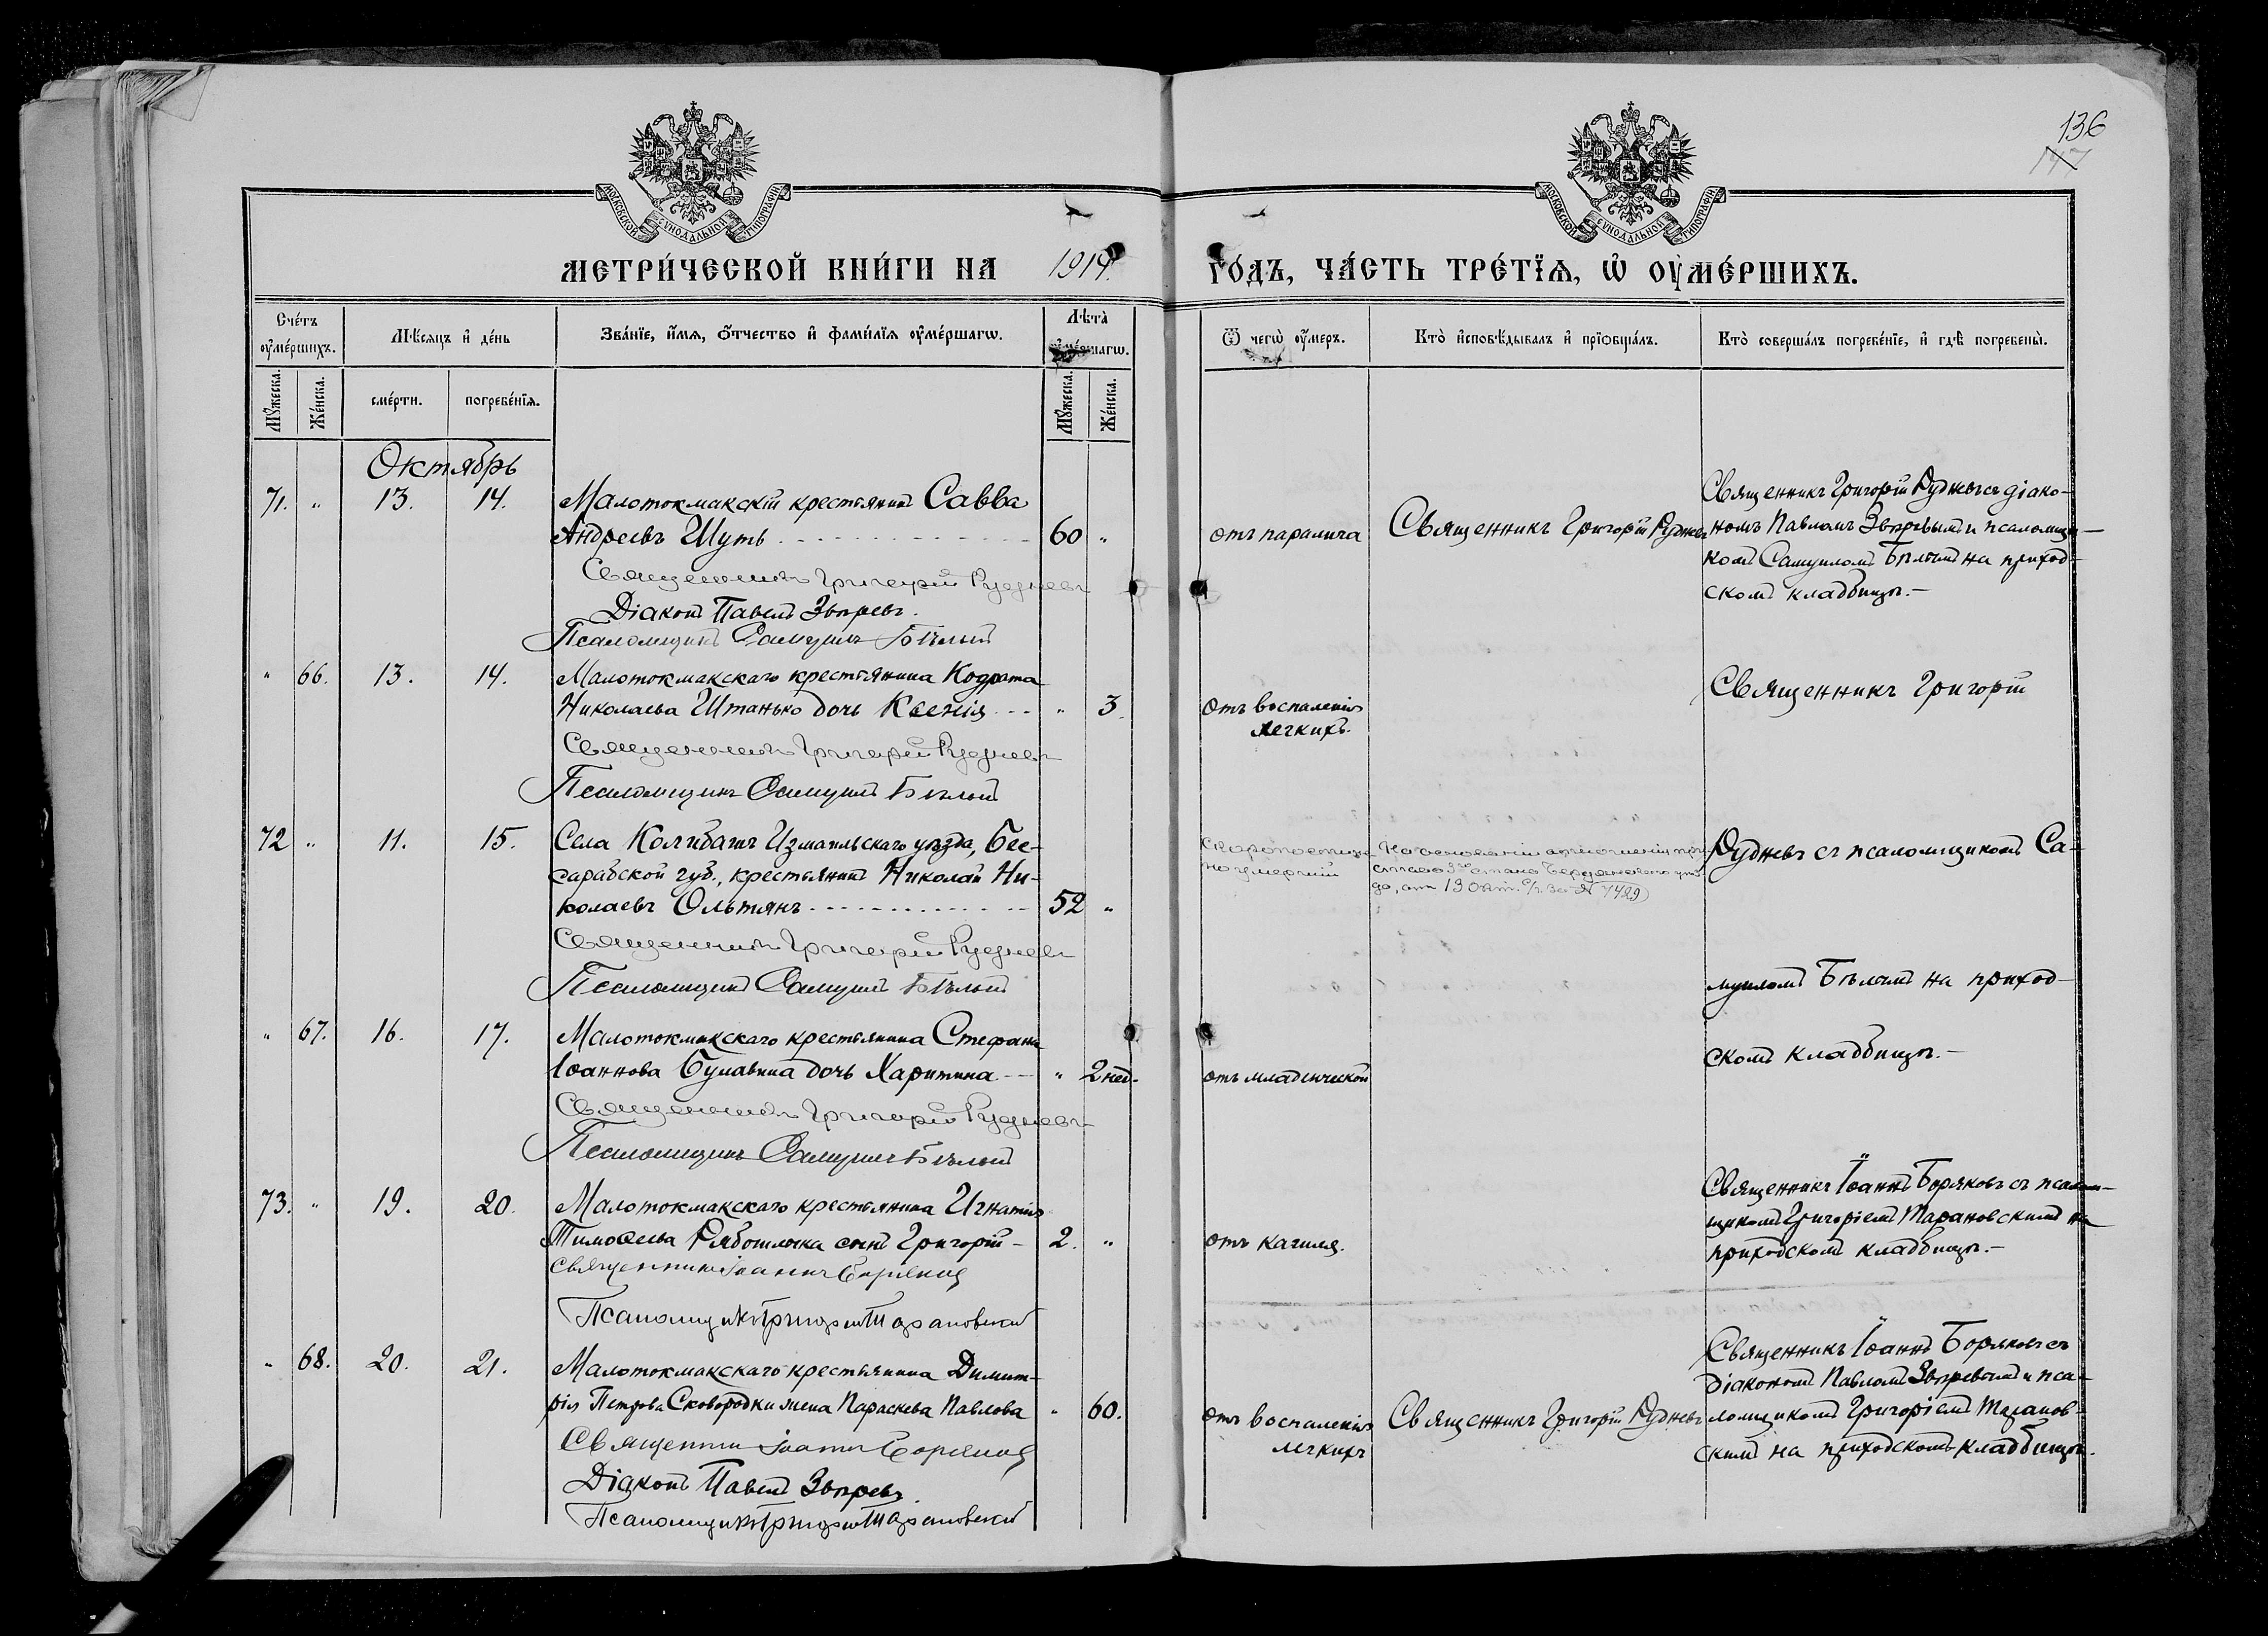 136
147
МОСКОВСКОЙ СѴНОДАЛЬНОЙ ТИПОГРАФІИ
МОСКОВСКОЙ СѴНОДАЛЬНОЙ ТИПОГРАФІИ
МЕТРИ́ЧЕСКОЙ КНИ́ГИ НА 1914. ГО́ДЪ, ЧА́СТЬ ТРЕ́ТЇѦ, Ѿ ОУМЕ́РШИХЪ.
Сче́тъ оумéршихъ.
Мѣсяцъ и де́нь
Зва́нїе, и҆́мя, о҆́тчество и҆ фами́лїя оумéршагѡ.
Лѣта̀ оумéршагѡ.
Ѿ чегѡ̀ оу́меръ.
Кто̀ и҆сповѣ́дывалъ и҆ прїѡбща́лъ.
Кто̀ соверша́лъ погребе́нїе, и҆ гдѣ̀ погребены̀.
Мꙋ́жеска.
Же́нска.
сме́рти.
погребе́нїя.
Мꙋ́жеска.
Же́нска.
Октябрь
71. " 13. 14. Малотокмакскій крестьянинъ Савва
Андреевъ Шуть 60 "
Священникъ Григорій Рудневъ
Діаконъ Павелъ Звѣревъ.
Псаломщикъ Самуилъ Бѣлый
отъ паралича
Священникъ Григорій Рудневъ
Священникъ Григорій Рудневъ съ діако-
номъ Павломъ Звѣревымъ и псаломщи-
комъ Самуиломъ Бѣлымъ на приход-
скомъ кладбищѣ.-
" 66. 13. 14. Малотокмакскаго крестьянина Кодрата
Николаева Штанько дочь Ксенія " 3.
Священникъ Григорій Рудневъ
Псаломщикъ Самуилъ Бѣлый
отъ воспаленія
легкихъ.
Священникъ Григорій
72 " 11. 15. Села Колибашъ Измаильскаго уѣзда, Бес-
сарабской губ., крестьянинъ Николай Ни-
колаевъ Ольтянъ 52 "
Священникъ Григорій Рудневъ
Псаломщикъ Самуилъ Бѣлый
Скоропостиж-
но умершій
На основаніи отношенія при-
става 3го стана Бердянскаго уѣз-
да, отъ 13 Окт. с/г. за № 7429
Рудневъ съ псаломщикомъ Са-
муиломъ Бѣлымъ на приход-
" 67. 16. 17. Малотокмакскаго крестьянина Стефана
Іоаннова Булавина дочь Харитина " 2 нед.
Священникъ Григорій Рудневъ
Псаломщикъ Самуилъ Бѣлый
отъ младенческой
скомъ кладбищѣ.-
73. " 19. 20. Малотокмакскаго крестьянина Игнатія
Тимоѳеева Рябошапка сынъ Григорій - 2. "
Священникъ Іоаннъ Боряковъ
Псаломщикъ Григорій Тарановскій
отъ кашля.
Священникъ Іоаннъ Боряковъ съ псалом-
щикомъ Григоріемъ Тарановскимъ на
приходскомъ кладбищѣ.-
" 68. 20. 21. Малотокмакскаго крестьянина Димит-
рія Петрова Сковородки жена Параскева Павлова " 60.
Священникъ Іоаннъ Боряковъ
Діаконъ Павелъ Звѣревъ.
Псаломщикъ Григорій Тарановскій
отъ воспаленія
легкихъ
Священникъ Григорій Рудневъ
Священникъ Іоаннъ Боряковъ съ
діакономъ Павломъ Звѣревымъ и пса-
ломщикомъ Григоріемъ Таранов-
скимъ на приходскомъ кладбищѣ.